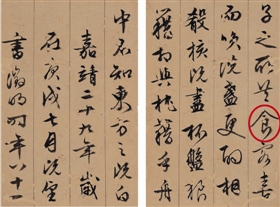 子之所共食客喜
而笑洗盞更酌相
殽核既盡杯盤狼
藉相與枕藉乎舟
中不知東方之既白
嘉靖二十九年歲
在庚戌七月既望
書徵明時年八十一